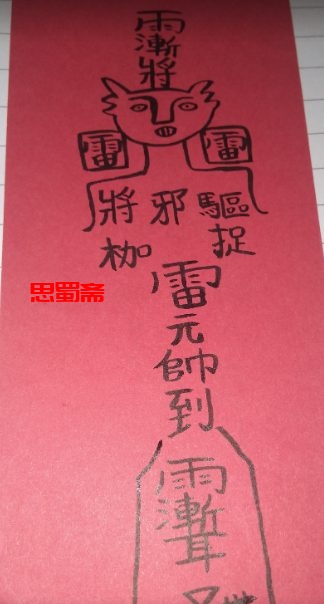 雨漸將
雷 雷
將 邪 驅
枷 捉
雷元帥到
雨漸耳
思蜀斋